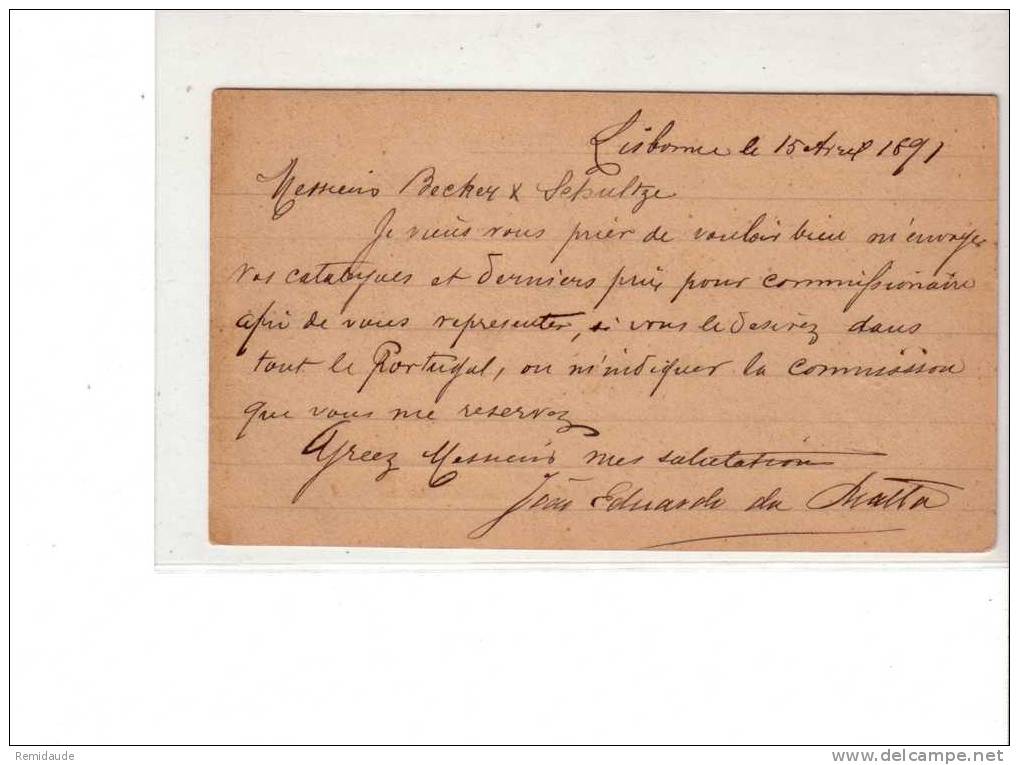 Lisbonne le 15 Avril 1891
Messieurs Becker & Schultze
Je viens vous prier de vouloir bien m'envoyer
vos catalogues et derniers prix pour commissionaire
afin de vous representer, si vous le desirez dans
tout le Portugal, ou m'indiquer la commission
que vous me reservez
Agreez Messieurs mes salutations
João Eduardo da Matta
Remidaude
www.delcampe.net